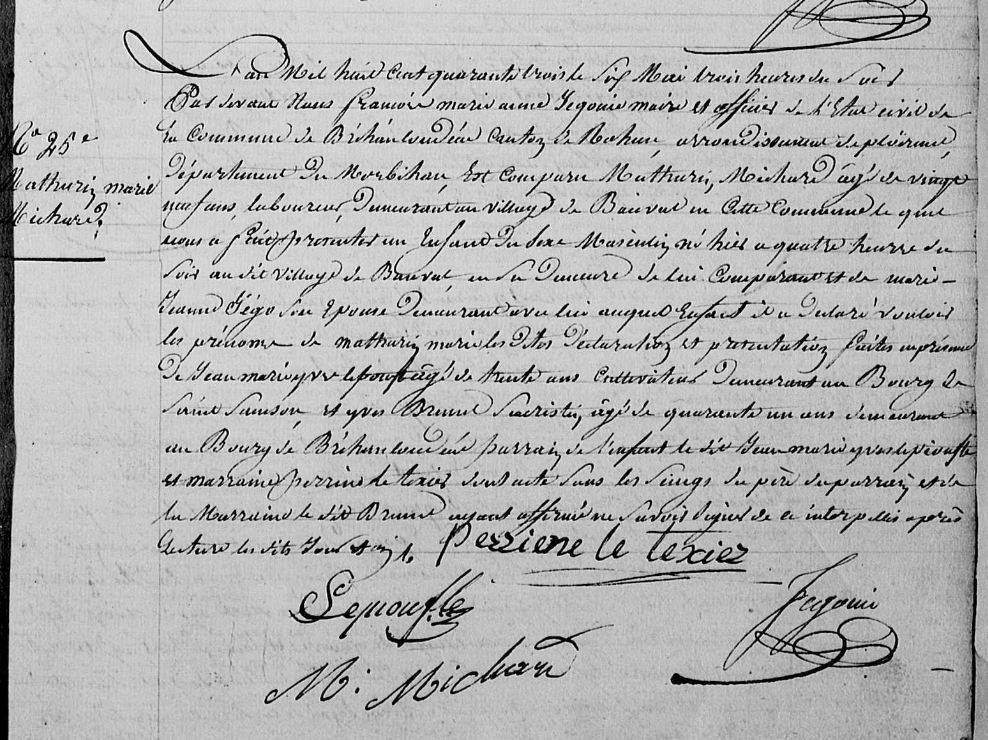 L'an Mil huit cent quarante trois le six Mai trois heures du Soir
Par devant Nous françois marie aimé Jegouic maire et officier de l'Etat civil de
la Commune de Bréhan Loudéac Canton de Rohan, arrondissement de ploërmel,
Département du Morbihan, Est Comparu Mathurin Michard âgé de vingt
neuf ans, laboureur, Demeurant au village de Bauval en Cette Commune le quel
nous a fait presenter un Enfant du Sexe Masculin né hier a quatre heurre du
Soir au dit village de Bauval, en Sa Demeure de lui Comparant et de marie
Jeanne Jégo Son Epouse Demeurant avec lui auquel Enfant il a Declaré vouloir
les prénoms de mathurin marie les dites Déclaration et presentation faites en présence
De Jean marie yves le pouffe âgé de trente ans Cultivateur Demeurant au Bourg de
Saint Samson, et yves Brunel Sacristin âgé de quarante un ans demeurant
au Bourg de Bréhan Loudéac parrain de l'enfant le dit Jean marie yves le piouffle
et marraine perrine le texier dont acte Sous les Seings du père du parrain et de
la Marraine le dit Brunel ayant affirmé ne Savoir Signer de ce interpellé après
Lecture les dits Jour et an /.
Perriene le texier
N° 25e
Mathurin marie
Michard
Lepioufle
Jegouic
M. Michard